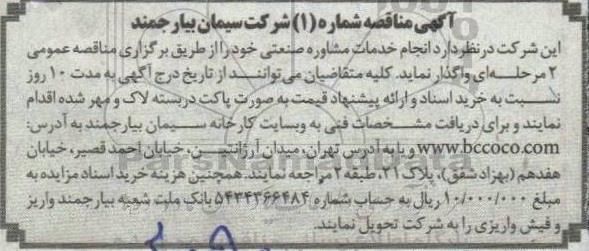 آگهی مناقصه شماره (۱) شرکت سیمان بیارجمند
این شرکت درنظر دارد انجام خدمات مشاوره صنعتی خود را از طریق برگزاری مناقصه عمومی
۲ مرحله‌ای واگذار نماید. کلیه متقاضیان می‌توانند از تاریخ درج آگهی به مدت ۱۰ روز
نسبت به خرید اسناد و ارائه پیشنهاد قیمت به صورت پاکت دربسته لاک و مهر شده اقدام
نمایند و برای دریافت مشخصات فنی به وبسایت کارخانه سیمان بیارجمند به آدرس:
www.bccoco.com و یا به آدرس تهران، میدان آرژانتین، خیابان احمد قصیر، خیابان
هفدهم (بهزاد شفق)، پلاک ۲۱، طبقه ۲ مراجعه نمایند. همچنین هزینه خرید اسناد مزایده به
مبلغ ۱۰/۰۰۰/۰۰۰ ریال به حساب شماره ۵۴۳۴۳۶۶۴۸۴ بانک ملت شعبه بیارجمند واریز
و فیش واریزی را به شرکت تحویل نمایند.